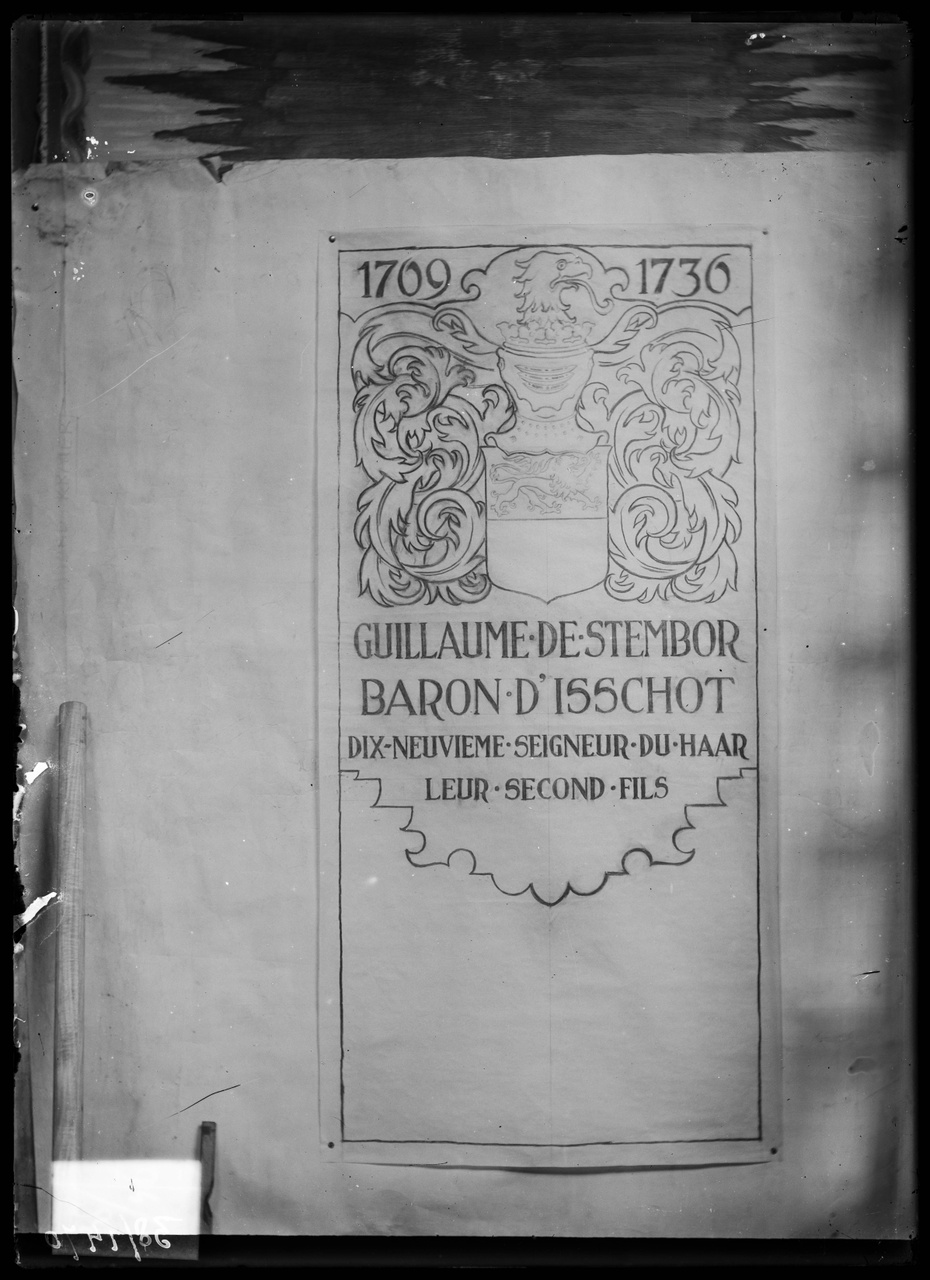 1709 1736
GUILLAUME·DE·STEMBOR
BARON·D'ISSCHOT
DIX-NEUVIEME·SEIGNEUR·DU·HAAR
LEUR·SECOND·FILS